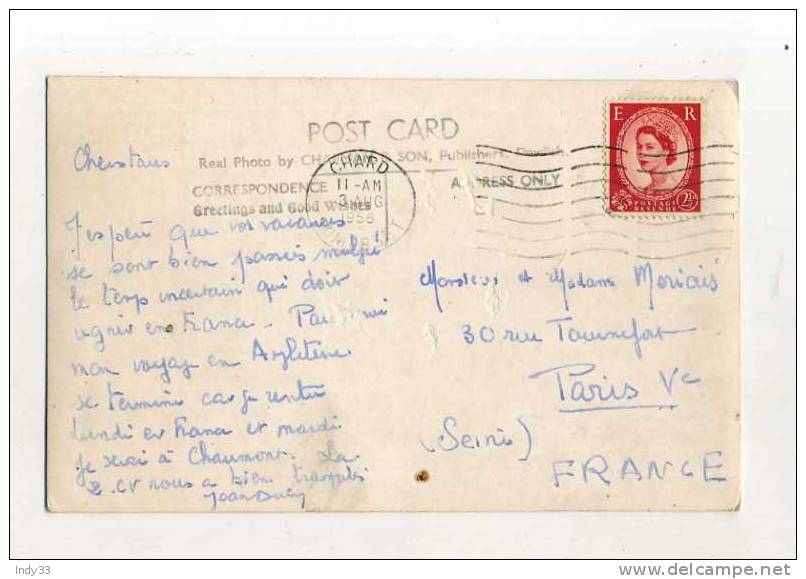 POST CARD
Real Photo by CHAPMAN & SON, Publishers, Dawlish.
CORRESPONDENCE
ADDRESS ONLY
Greetings and Good Wishes
CHARD
11-AM
3 AUG
1956
E R
2½
POSTAGE
REVENUE
J'espère que vos vacances
se sont bien passés malgré
le temps incertain qui doit
régner en France.
mon voyage en Angleterre
se termine car je rentre
Lundi en France et mardi
je serai à Chaumont. La
2 CV nous a bien
Monsieur et Madame
30 rue Tournefort
Paris Ve
(Seine)
FRANCE
Indy33
www.delcampe.net